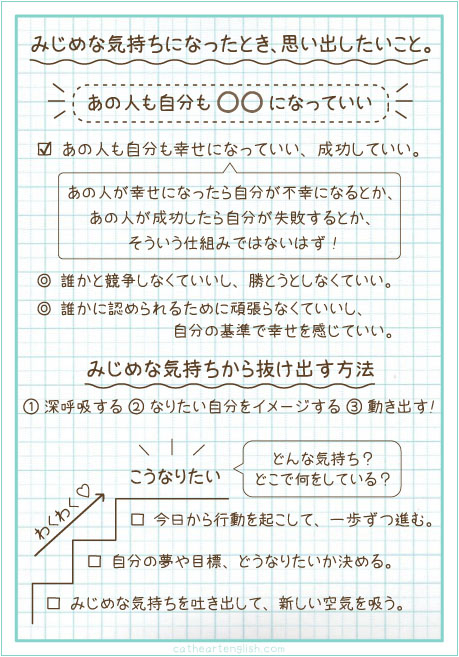 みじめな気持ちになったとき、思い出したいこと。
あの人も自分も ○○ になっていい
☑ あの人も自分も幸せになっていい、成功していい。
あの人が幸せになったら自分が不幸になるとか、
あの人が成功したら自分が失敗するとか、
そういう仕組みではないはず！
◎ 誰かと競争しなくていいし、勝とうとしなくていい。
◎ 誰かに認められるために頑張らなくていいし、
自分の基準で幸せを感じていい。
みじめな気持ちから抜け出す方法
① 深呼吸する ② なりたい自分をイメージする ③ 動き出す！
どんな気持ち？
どこで何をしている？
こうなりたい
わくわく♡
□ 今日から行動を起こして、一歩ずつ進む。
□ 自分の夢や目標、どうなりたいか決める。
□ みじめな気持ちを吐き出して、新しい空気を吸う。
catheartenglish.com